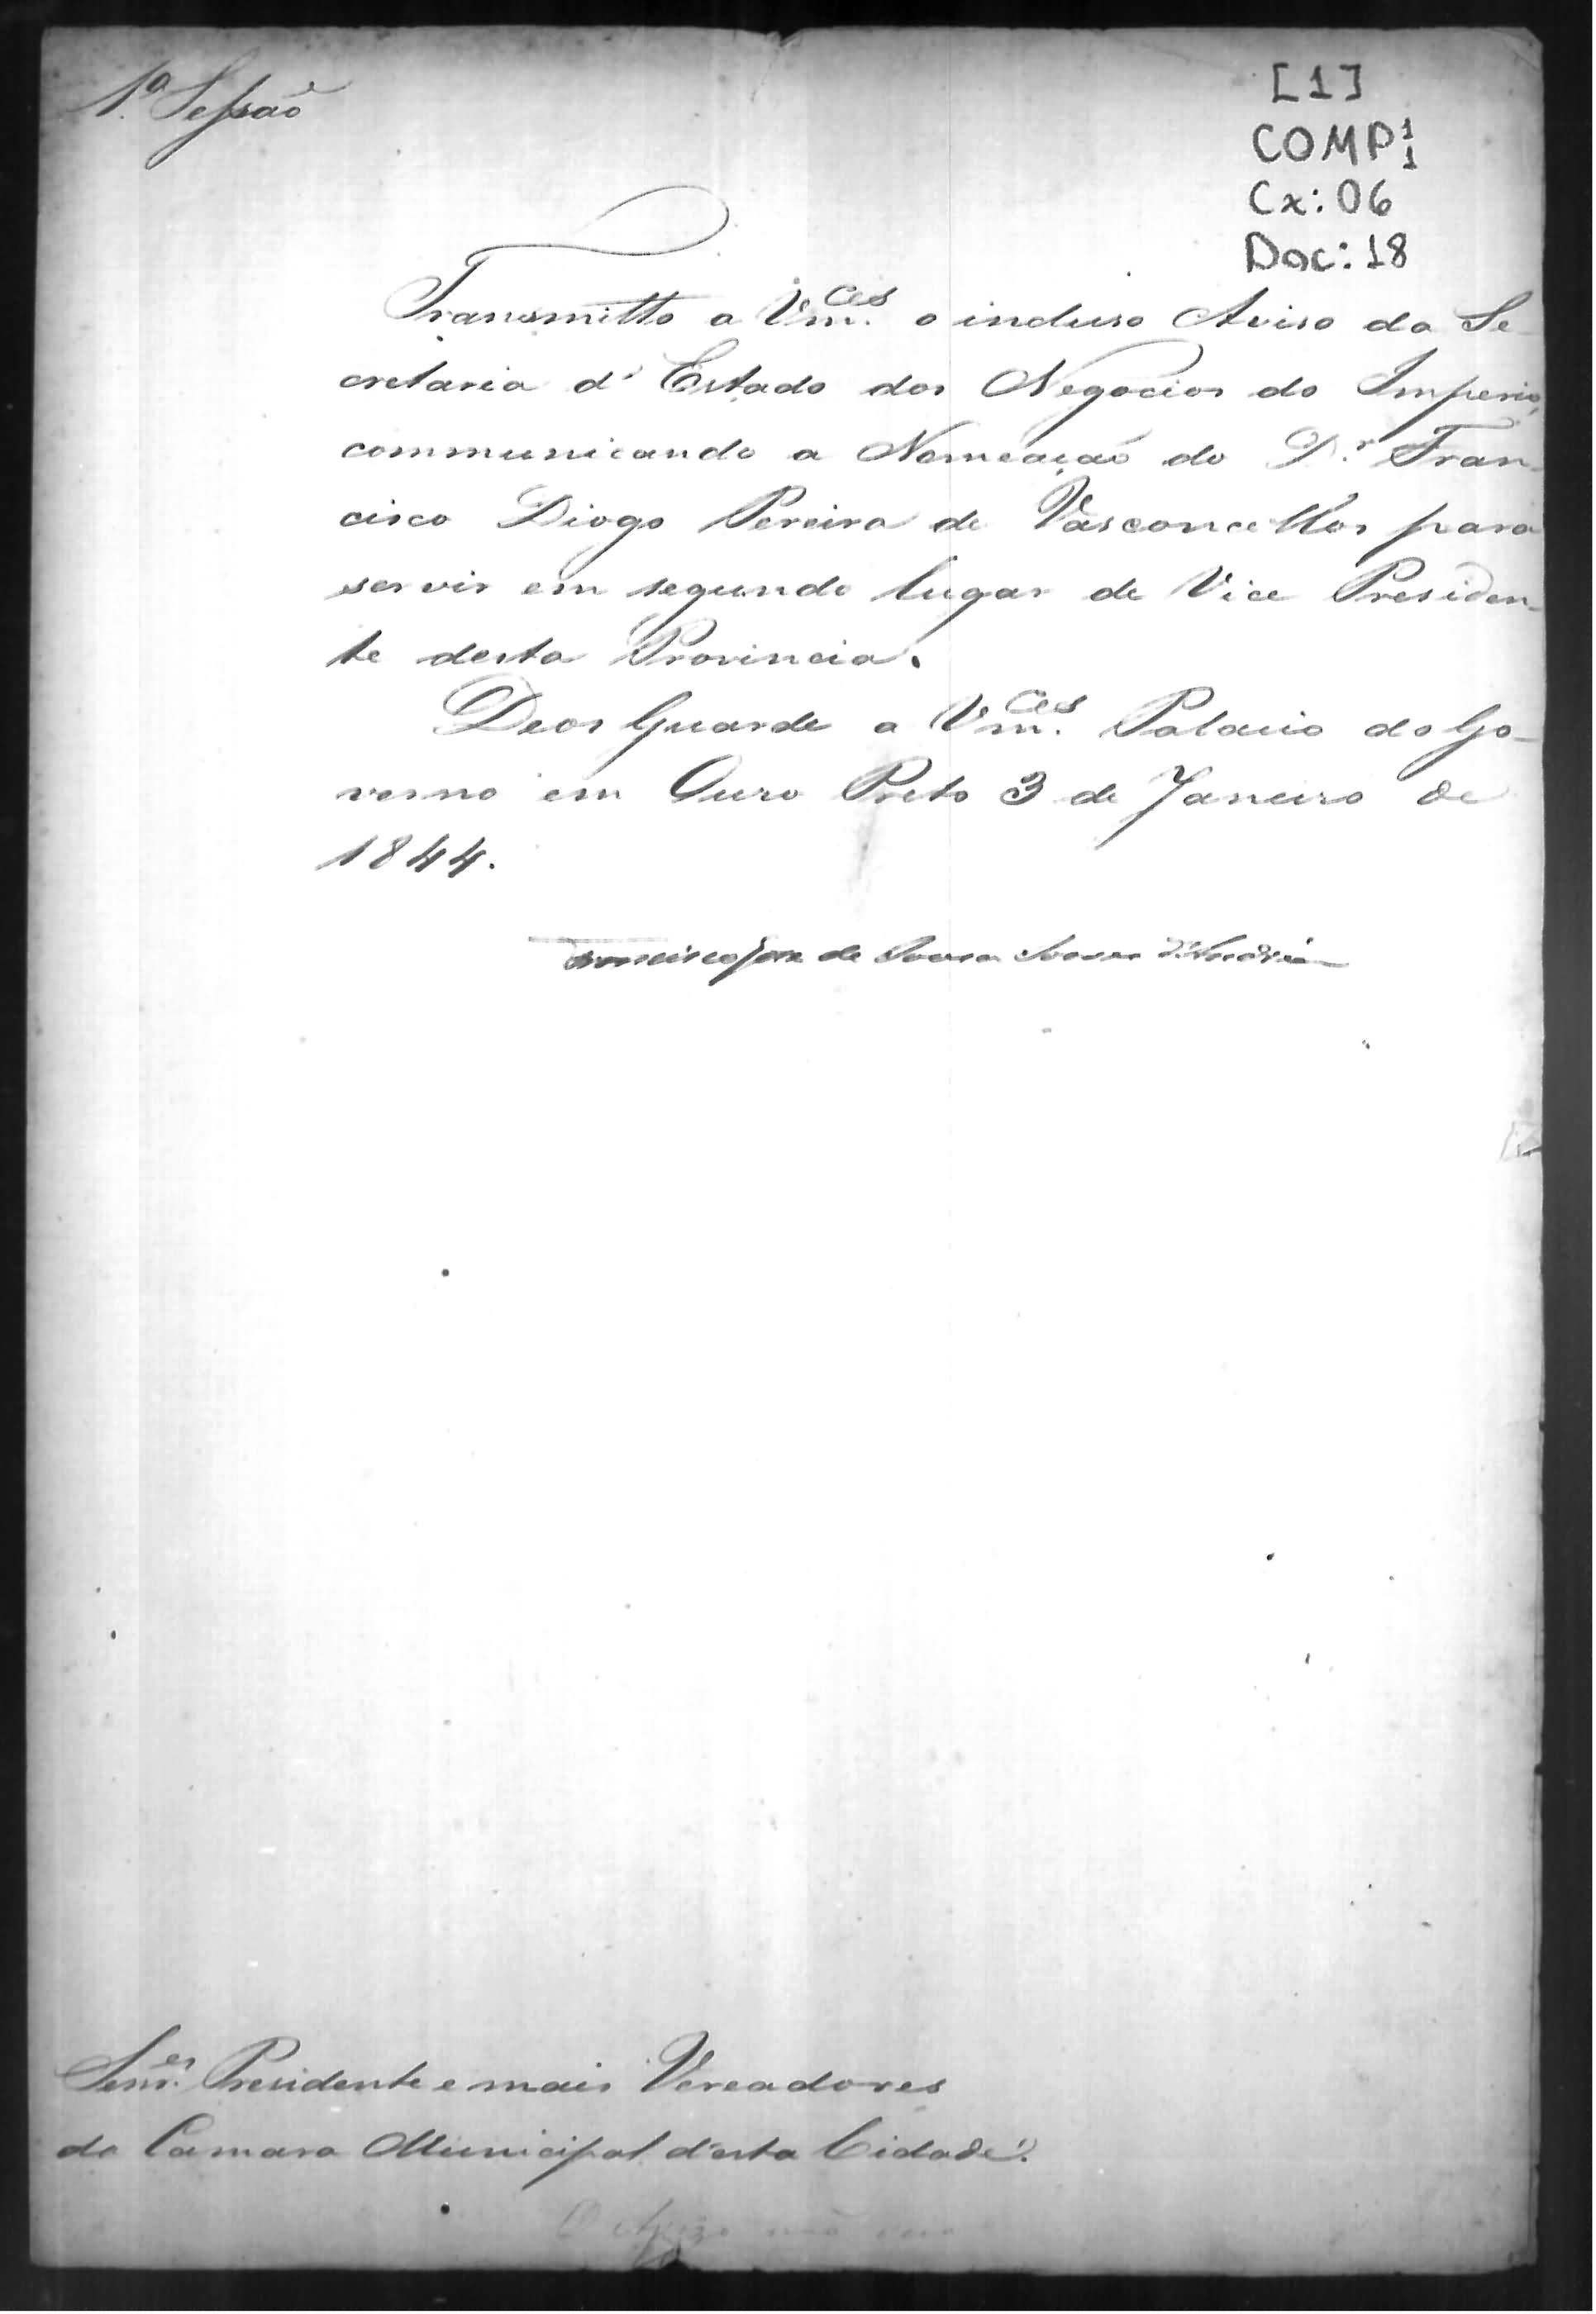 1ª Sessão
[1]
COMP 1 1
Cx: 06
Doc: 18
Transmitto a Vm.ces o incluso Aviso da Se-
cretaria d'Estado dos Negocios do Imperio,
communicando a Nomeação do D.r Fran-
cisco Diogo Pereira de Vasconcellos para
servir em segundo lugar de Vice Presiden-
te desta Provincia.
Deos Guarde a Vm.ces Palacio do Go-
verno em Ouro Preto 3 de Janeiro de
1844.
Francisco José de Souza Soares d'Andréa
Senr.es Presidente e mais Vereadores
da Camara Municipal d'esta Cidade.